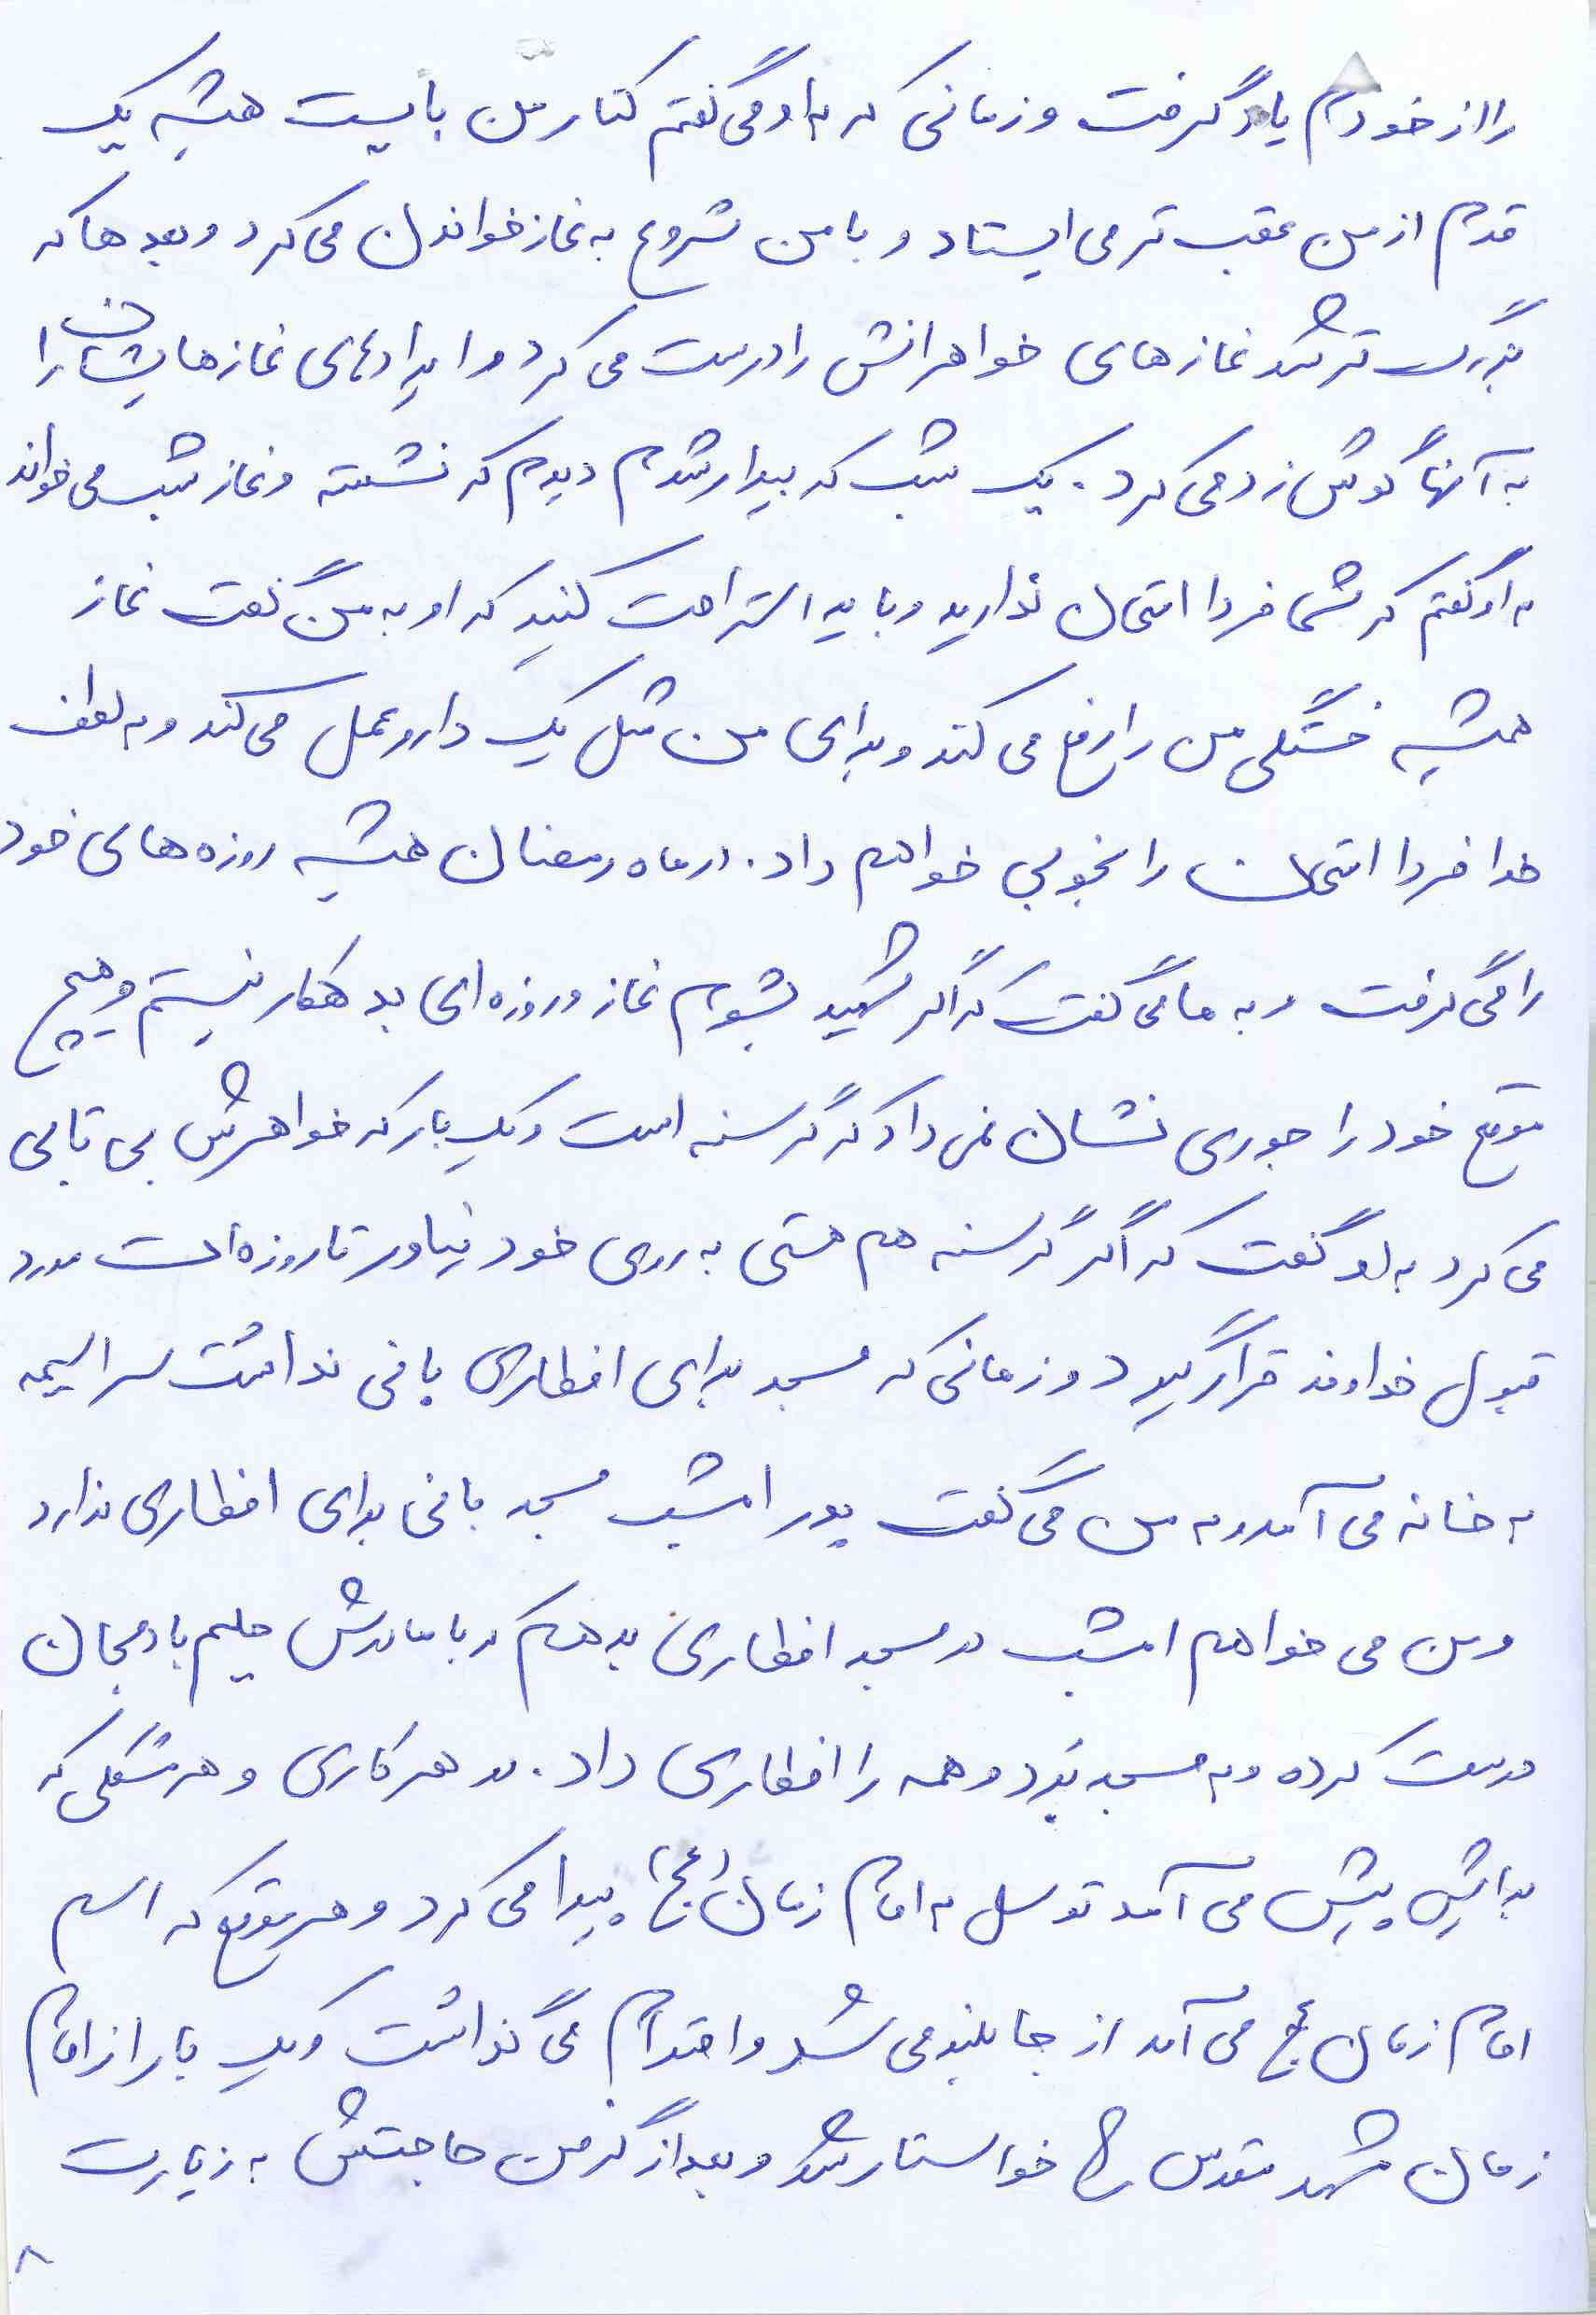 را از خودم یاد گرفت و زمانی که به او می گفتم کنار من بایست همیشه یک
قدم از من عقب تر می ایستاد و با من شروع به نماز خواندن می کرد و بعدها که
بزرگ تر شد نمازهای خواهرانش را درست می کرد و ایرادهای نمازهایشان را
به آنها گوش زد می کرد. یک شب که بیدار شدم دیدم که نشسته و نماز شب می خواند
به او گفتم که شما فردا امتحان دارید و باید استراحت کنید که او به من گفت نماز
همیشه خستگی من را رفع می کند و برای من مثل یک دارو عمل می کند و به لطف
خدا فردا امتحان را بخوبی خواهم داد. در ماه رمضان همیشه روزه های خود
را می گرفت و به ما می گفت که اگر شهید بشوم نماز و روزه ای بدهکار نیستم و هیچ
موقع خود را جوری نشان نمی داد که گرسنه است و یک بار که خواهرش بی تابی
می کرد به او گفت که اگر گرسنه هم هستی به روی خود نیاور تا روزه ات مورد
قبول خداوند قرار گیرد و زمانی که مسجد برای افطاری بانی نداشت سراسیمه
به خانه می آمد و به من می گفت پدر امشب مسجد بانی برای افطاری ندارد
و من می خواهم امشب در مسجد افطاری بدهم و با مادرش حلیم بادمجان
درست کرده و به مسجد برد و همه را افطاری داد. در هر کاری و هر مشکلی که
برایش پیش می آمد توسل به امام زمان (عج) پیدا می کرد و هر موقع که اسم
امام زمان عج می آمد از جا بلند می شد و احترام می گذاشت و یک بار از امام
زمان مشهد مقدس را خواستار شد و بعد از گرفتن حاجتش به زیارت
۸